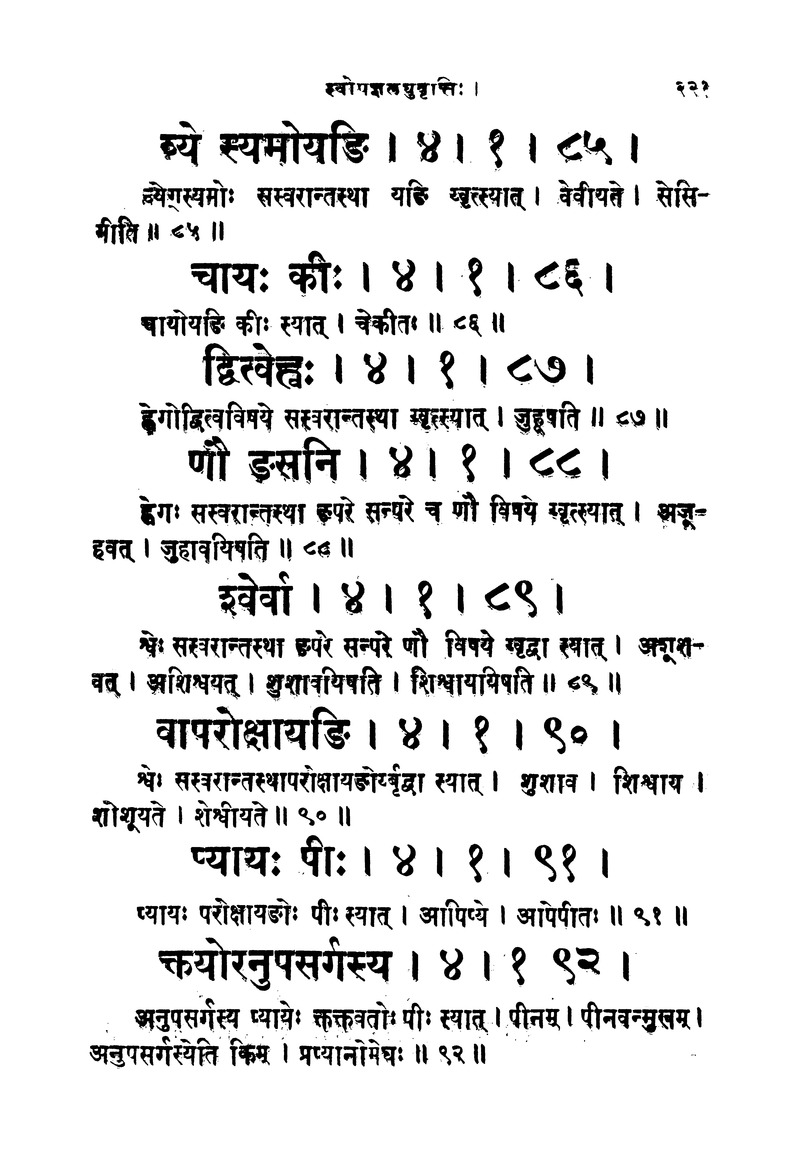 स्वोपज्ञलघुवृत्तिः । २२१
व्ये स्यमोयङि । ४ । १ । ८५ ।
व्येग्स्यमोः सस्वरान्तस्था यङि य्वृत्स्यात् । वेवीयते । सेसि-
मीति ॥ ८५ ॥
चायः कीः । ४ । १ । ८६ ।
चायोयङि कीः स्यात् । चेकीतः ॥ ८६ ॥
द्वित्वेह्वः । ४ । १ । ८७ ।
ह्वेगोद्वित्वविषये सस्वरान्तस्था य्वृत्स्यात् । जुहूषति ॥ ८७ ॥
णौ ङसनि । ४ । १ । ८८ ।
ह्वेगः सस्वरान्तस्था ङपरे सन्परे च णौ विषये य्वृत्स्यात् । अजू-
हवत् । जुहावयिषति ॥ ८८ ॥
श्वेर्वा । ४ । १ । ८९ ।
श्वेः सस्वरान्तस्था ङपरे सन्परे णौ विषये य्वृद्वा स्यात् । अशूश-
वत् । अशिश्वयत् । शुशावयिषति । शिश्वाययिषति ॥ ८९ ॥
वापरोक्षायङि । ४ । १ । ९० ।
श्वेः सस्वरान्तस्थापरोक्षायङोर्य्वृद्वा स्यात् । शुशाव । शिश्वाय ।
शोशूयते । शेश्वीयते ॥ ९० ॥
प्यायः पीः । ४ । १ । ९१ ।
प्यायः परोक्षायङोः पीः स्यात् । आपिप्ये । आपेपीतः ॥ ९१ ॥
क्तयोरनुपसर्गस्य । ४ । १ ९२ ।
अनुपसर्गस्य प्यायेः क्तक्तवतोः पीः स्यात् । पीनम् । पीनवन्मुखम् ।
अनुपसर्गस्येति किम् । प्रप्यानोमेघः ॥ ९२ ॥